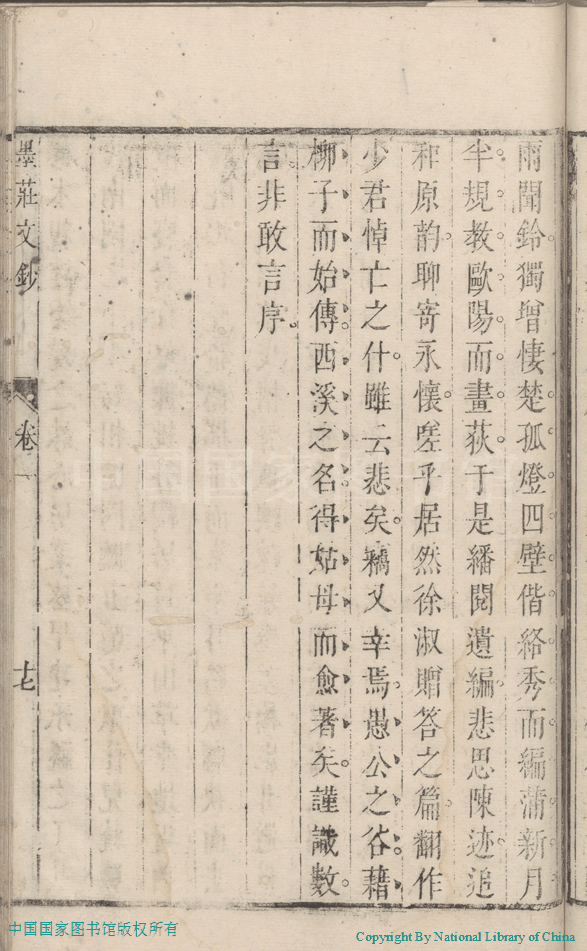 雨聞鈴獨增悽楚。孤燈四壁偕絡秀而編蒲新月
半規教歐陽而畫荻于是繙閱遺編悲思陳迹。追
和原韵。聊寄永懷。嗟乎居然徐淑贈答之篇。翻作
少君悼亡之什。雖云悲矣。竊又幸焉。愚公之谷藉
柳子而始傳。西溪之名得姑母而愈著矣。謹識數
言非敢言序。
墨莊文鈔
卷一
十七
中国国家图书馆版权所有
Copyright By National Library of China